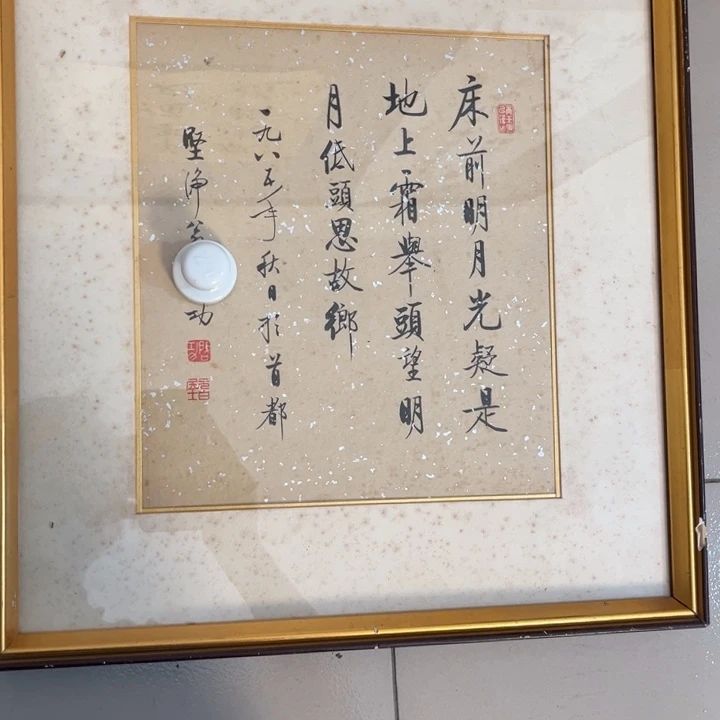 床前明月光疑是
地上霜舉頭望明
月低頭思故鄉
一九八五年秋日於首都
堅淨功